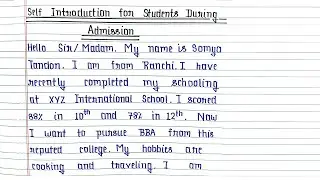 Self Introduction for Students During
Admission
Hello Sir/Madam. My name is Somya
Tandon. I am from Ranchi. I have
recently completed my schooling
at XYZ International School. I scored
88% in 10th and 79% in 12th. Now
I want to pursue BBA from this
reputed college. My hobbies are
cooking and traveling. I am